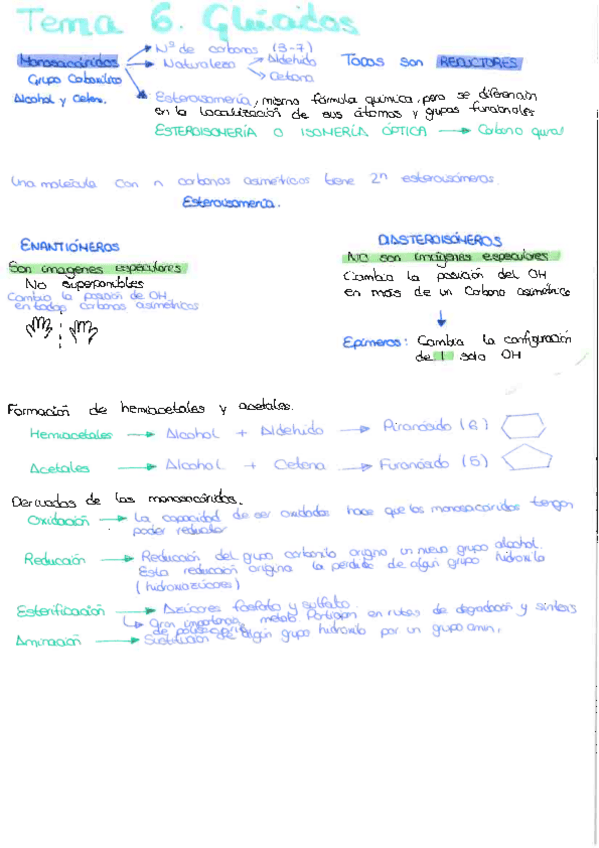 Tema 6. Glúcidos
Monosacáridos → Nº de carbonos (3-7)
→ Naturaleza → Aldehído
→ Cetona
Todos son REDUCTORES
Grupo Carbonílico
Alcohol y Cetona.
→ Esteroisomería, misma fórmula química, pero se diferencian
en la localización de sus átomos y grupos funcionales
ESTEROISOMERÍA O ISOMERÍA ÓPTICA → Carbono quiral
Una molécula con n carbonos asimétricos tiene 2ⁿ esteroisómeros.
Esteroisomería.
ENANTIÓMEROS
Son imágenes especulares
No superponibles
Cambia la posición de OH
en todos carbonos asimétricos
DIASTEROISÓMEROS
NO son imágenes especulares
Cambia la posición del OH
en más de un Carbono asimétrico
↓
Epímeros: Cambia la configuración
de 1 solo OH
Formación de hemiacetales y acetales.
Hemiacetales → Alcohol + Aldehído → Piranósido (6)
Acetales → Alcohol + Cetona → Furanósido (5)
Derivados de los monosacáridos.
Oxidación → La capacidad de ser oxidados hace que los monosacáridos tengan
poder reductor
Reducción → Reducción del grupo carbonilo origina un nuevo grupo alcohol.
Esta reducción origina la pérdida de algún grupo hidroxilo
(hidroxiazúcares)
Esterificación → Azúcares fosfato y sulfato.
↳ Gran importancia metab. Participan en rutas de degradación y síntesis
de
Aminación → Sustitución de algún grupo hidroxilo por un grupo amin.